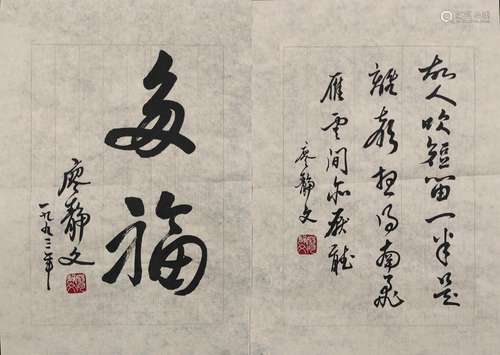 多福
廖静文
一九九三年
故人吹短笛一半是
離聲想得南飛
雁雲間亦厭聽
廖静文